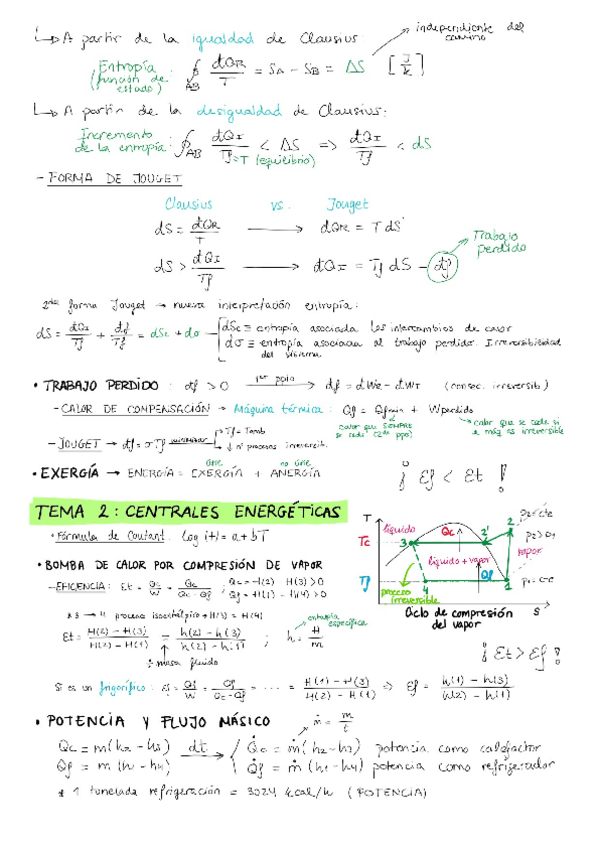 ↳ A partir de la igualdad de Clausius:
independiente del camino
Entropía (función de estado): ∮AB dQR/T = SA - SB = ΔS [J/K]
↳ A partir de la desigualdad de Clausius:
Incremento de la entropía: ∮AB dQI/Tf < ΔS => dQI/Tf < dS
Tf=T (equilibrio)
- FORMA DE JOUGET
Clausius vs. Jouget
dS = dQR/T → dQR = T dS
dS > dQI/Tf → dQI = Tf dS - df → Trabajo perdido
2da forma Jouget → nueva interpretación entropía:
dS = dQI/Tf + df/Tf = dSe + dσ
dSe ≡ entropía asociada los intercambios de calor
dσ ≡ entropía asociada al trabajo perdido. Irreversibilidad del sistema
• TRABAJO PERDIDO: df > 0 1er ppio → df = dWe - dWT (consec. irreversib.)
- CALOR DE COMPENSACIÓN → Máquina térmica: Qf = Qfmin + Wperdido
calor que SIEMPRE se cede (2do ppo)
calor que se cede si la máq es irreversible
- JOUGET → df = σTf minimizar
Tf = Tamb
↓ nº procesos irreversib.
• EXERGÍA → ENERGÍA = EXERGÍA + ANERGÍA
útil no útil
¡ Ef < Et !
TEMA 2: CENTRALES ENERGÉTICAS
• Fórmula de Coutant. log(t) = a + bT
• BOMBA DE CALOR POR COMPRESIÓN DE VAPOR
- EFICIENCIA: Et = Qc/W = Qc/(Qc - Qf) ; Qc = H(2) - H(3) > 0
Qf = H(1) - H(4) > 0
proceso isoentálpico → H(3) = H(4)
Et = (H(2) - H(3))/(H(2) - H(1)) = (h(2) - h(3))/(h(2) - h(1)) ; h = H/m
entropía específica
÷ masa fluido
T
líquido
Qc
2'
2
3
Tc
líquido + vapor
vapor
Qf
Tf
4
1
proceso irreversible
S
Ciclo de compresión del vapor
¡ Et > Ef !
Si es un frigorífico: Ef = Qf/W = Qf/(Qc - Qf) = ... = (H(1) - H(3))/(H(2) - H(1)) => Ef = (h(1) - h(3))/(h(2) - h(1))
• POTENCIA Y FLUJO MÁSICO
ṁ = m/t
Qc = m(h2 - h3) dt → Q̇c = ṁ(h2 - h3) potencia como calefactor
Qf = m(h1 - h4) Q̇f = ṁ(h1 - h4) potencia como refrigerador
* 1 tonelada refrigeración = 3024 kcal/h (POTENCIA)